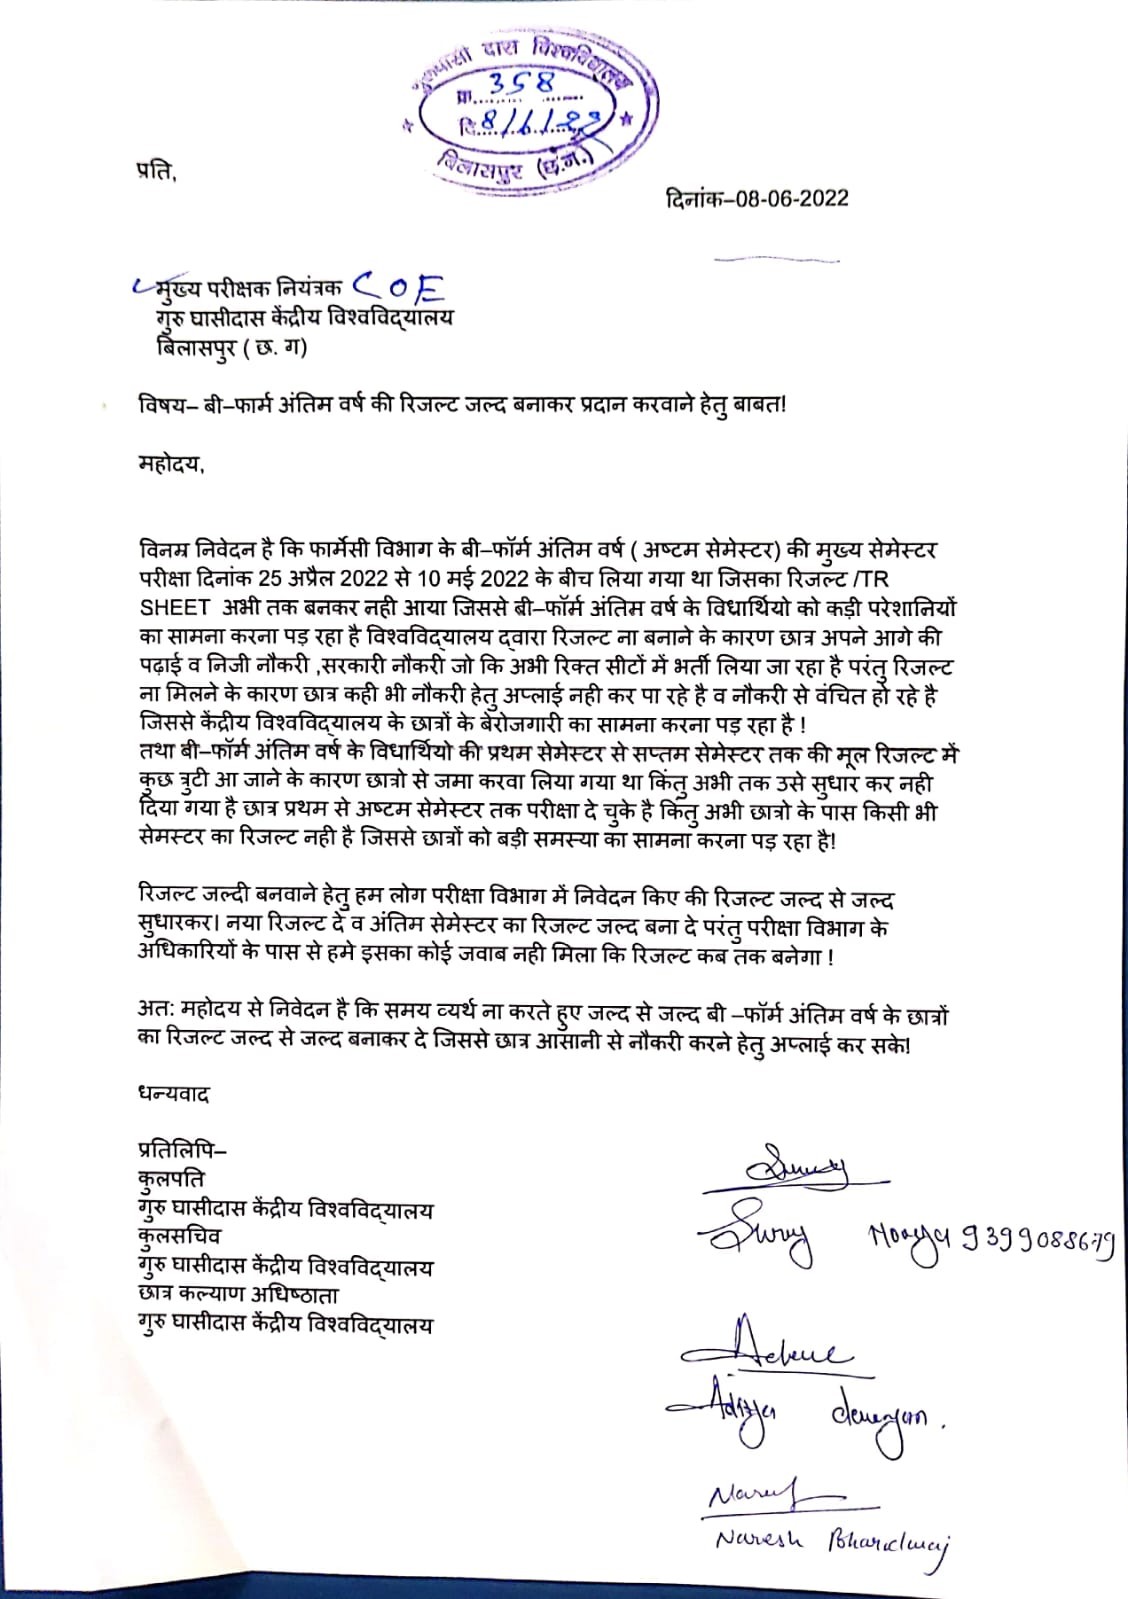 दास विश्वविद्यालय
क्र. 358
दि. 8/6/22
बिलासपुर (छ.ग.)
प्रति,
दिनांक–08-06-2022
मुख्य परीक्षक नियंत्रक COE
गुरु घासीदास केंद्रीय विश्वविद्यालय
बिलासपुर ( छ. ग)
विषय– बी–फार्म अंतिम वर्ष की रिजल्ट जल्द बनाकर प्रदान करवाने हेतु बाबत!
महोदय,
विनम्र निवेदन है कि फार्मेसी विभाग के बी–फॉर्म अंतिम वर्ष ( अष्टम सेमेस्टर) की मुख्य सेमेस्टर
परीक्षा दिनांक 25 अप्रैल 2022 से 10 मई 2022 के बीच लिया गया था जिसका रिजल्ट /TR
SHEET अभी तक बनकर नही आया जिससे बी–फॉर्म अंतिम वर्ष के विधार्थियो को कड़ी परेशानियों
का सामना करना पड़ रहा है विश्वविद्यालय द्वारा रिजल्ट ना बनाने के कारण छात्र अपने आगे की
पढ़ाई व निजी नौकरी ,सरकारी नौकरी जो कि अभी रिक्त सीटों में भर्ती लिया जा रहा है परंतु रिजल्ट
ना मिलने के कारण छात्र कही भी नौकरी हेतु अप्लाई नही कर पा रहे है व नौकरी से वंचित हो रहे है
जिससे केंद्रीय विश्वविद्यालय के छात्रों के बेरोजगारी का सामना करना पड़ रहा है !
तथा बी–फॉर्म अंतिम वर्ष के विधार्थियो की प्रथम सेमेस्टर से सप्तम सेमेस्टर तक की मूल रिजल्ट में
कुछ त्रुटी आ जाने के कारण छात्रो से जमा करवा लिया गया था किंतु अभी तक उसे सुधार कर नही
दिया गया है छात्र प्रथम से अष्टम सेमेस्टर तक परीक्षा दे चुके है किंतु अभी छात्रो के पास किसी भी
सेमस्टर का रिजल्ट नही है जिससे छात्रों को बड़ी समस्या का सामना करना पड़ रहा है!
रिजल्ट जल्दी बनवाने हेतु हम लोग परीक्षा विभाग में निवेदन किए की रिजल्ट जल्द से जल्द
सुधारकर। नया रिजल्ट दे व अंतिम सेमेस्टर का रिजल्ट जल्द बना दे परंतु परीक्षा विभाग के
अधिकारियों के पास से हमे इसका कोई जवाब नही मिला कि रिजल्ट कब तक बनेगा !
अत: महोदय से निवेदन है कि समय व्यर्थ ना करते हुए जल्द से जल्द बी –फॉर्म अंतिम वर्ष के छात्रों
का रिजल्ट जल्द से जल्द बनाकर दे जिससे छात्र आसानी से नौकरी करने हेतु अप्लाई कर सके!
धन्यवाद
प्रतिलिपि–
कुलपति
गुरु घासीदास केंद्रीय विश्वविद्यालय
कुलसचिव
गुरु घासीदास केंद्रीय विश्वविद्यालय
छात्र कल्याण अधिष्ठाता
गुरु घासीदास केंद्रीय विश्वविद्यालय
9399088679
Aditya dewangan.
Naresh Bhardwaj